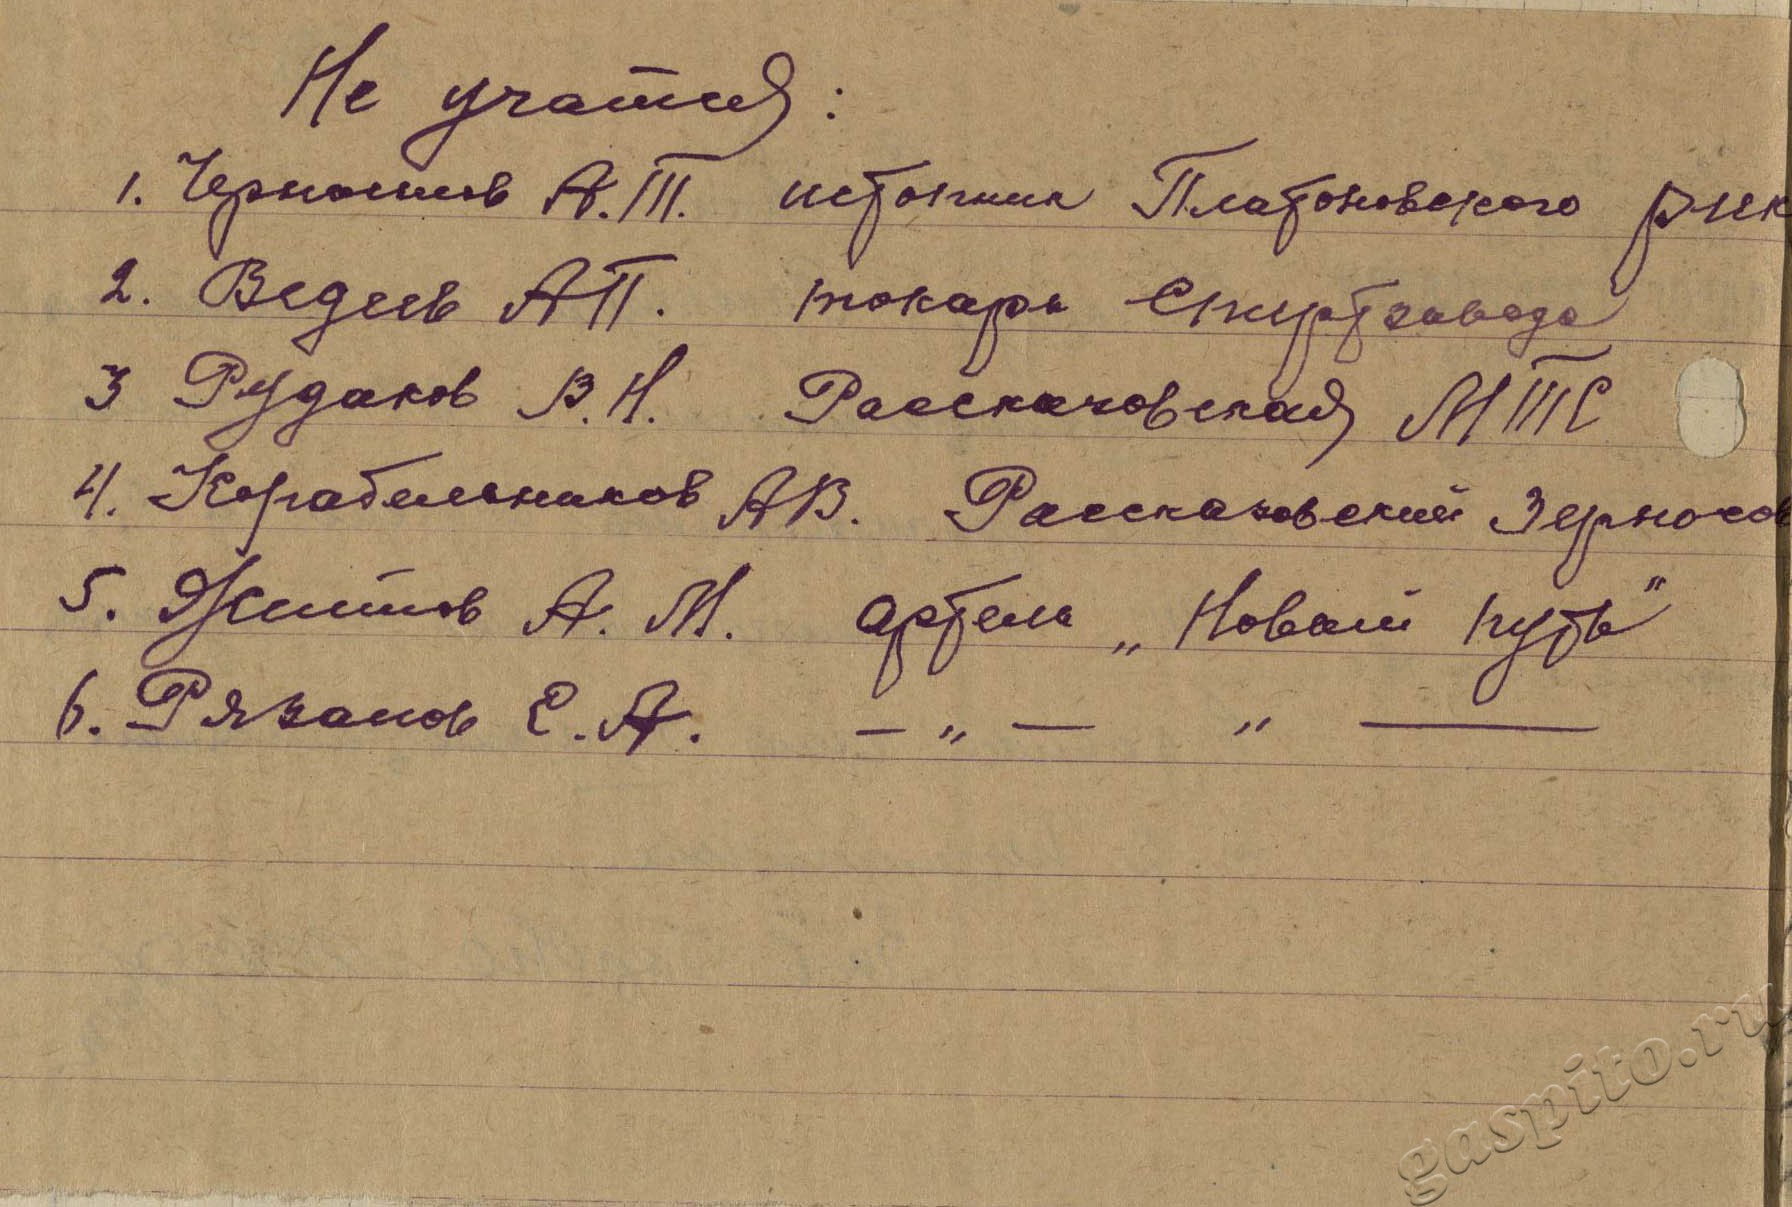 Не учатся:
1. Черношов А.Т. истопник Платоновского рик
2. Ведеев АП. токарь Спиртзавода
3 Рудаков В.Н. Рассказовская МТС
4. Корабельников АВ. Рассказовский Зерносов
5. Житов А.М. артель „Новый путь"
6. Рязанов Е.А. — „ — „ —
gaspito.ru